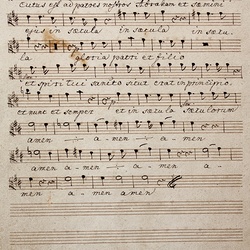 cutus est ad patres nostros Abraham et semini
ejus in sæcula in sæcula in sæcu-
la gloria patri et filio
et spiritui sancto sicut erat in principio
et nunc et semper et in sæcula sæculorum
amen - a - men - a - men -
amen a - men - a - men a -
men a - men amen